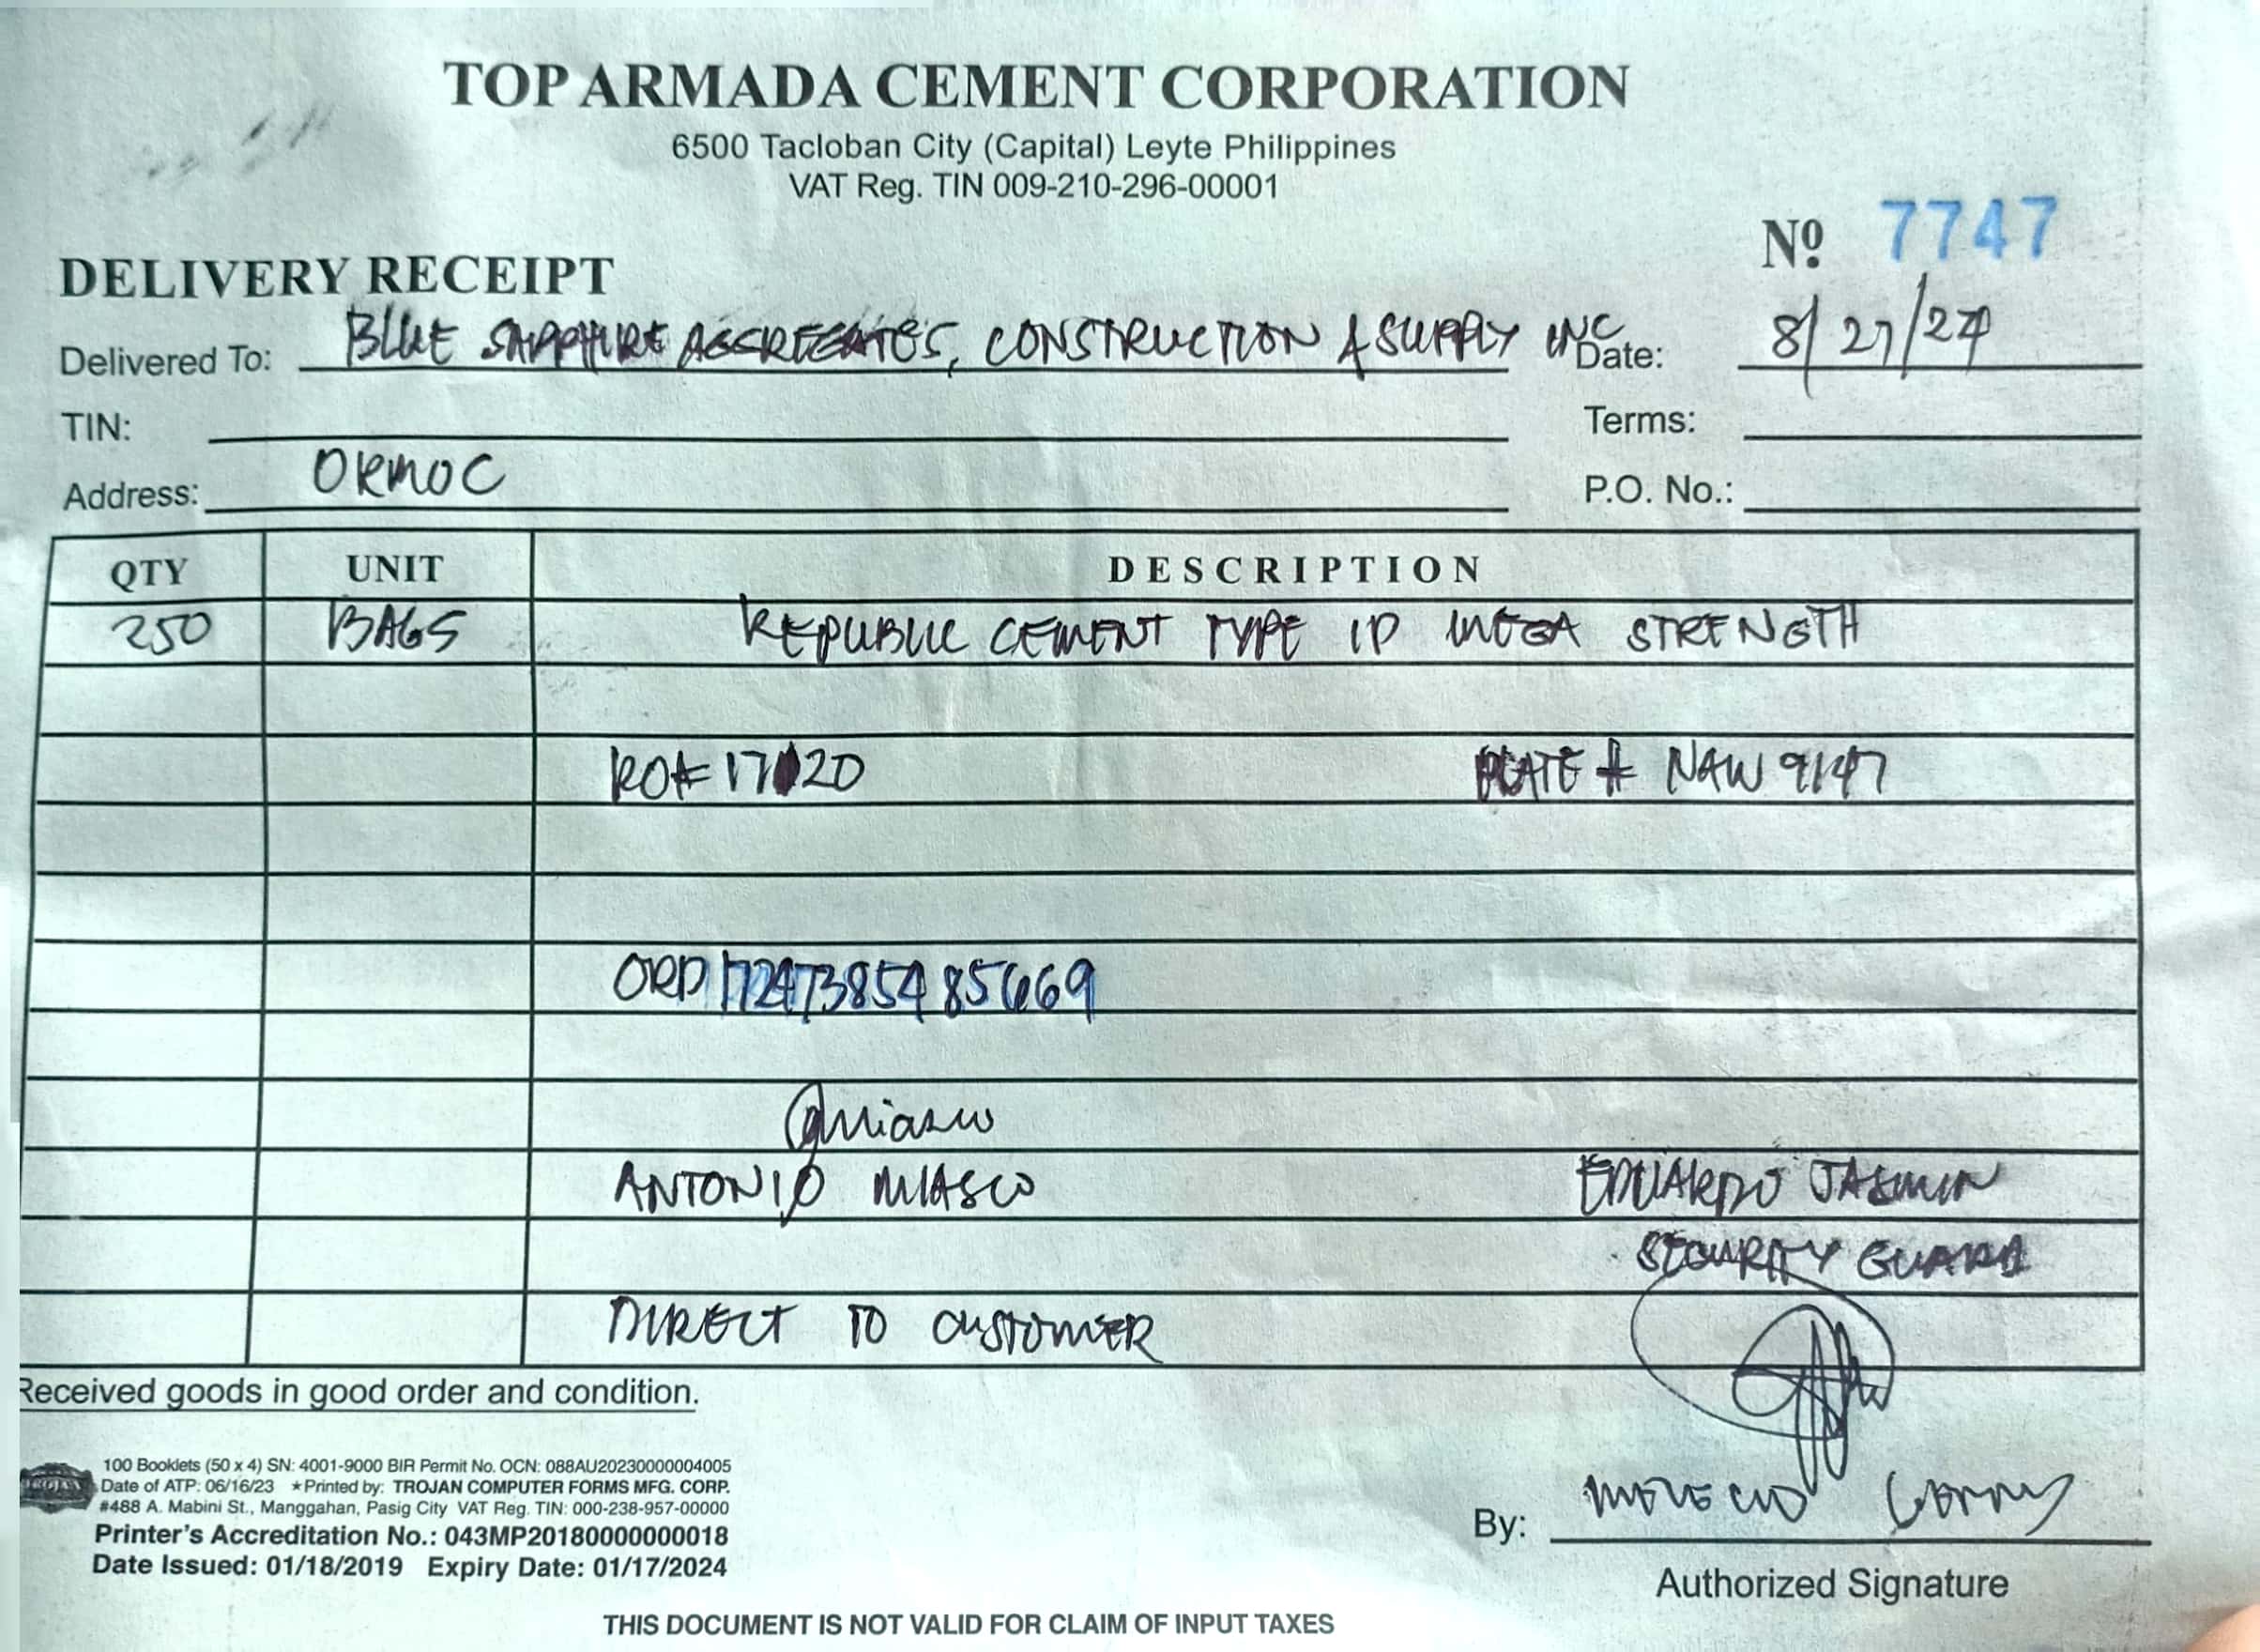 TOP ARMADA CEMENT CORPORATION
6500 Tacloban City (Capital) Leyte Philippines
VAT Reg. TIN 009-210-296-00001
Nº 7747
DELIVERY RECEIPT
Delivered To: BLUE SAPPHIRE AGGREGATES, CONSTRUCTION & SUPPLY INC Date: 8/27/24
TIN: Terms:
Address: ORMOC P.O. No.:
QTY UNIT DESCRIPTION
250 BAGS REPUBLIC CEMENT TYPE 1P MEGA STRENGTH
RO# 17120 PLATE # NAW 9147
ORD 17247385485669
ANTONIO MIASCO EDUARDO JASMIN
SECURITY GUARD
DIRECT TO CUSTOMER
Received goods in good order and condition.
100 Booklets (50 x 4) SN: 4001-9000 BIR Permit No. OCN: 088AU20230000004005
Date of ATP: 06/16/23 ★Printed by: TROJAN COMPUTER FORMS MFG. CORP.
#488 A. Mabini St., Manggahan, Pasig City VAT Reg. TIN: 000-238-957-00000
Printer's Accreditation No.: 043MP20180000000018
Date Issued: 01/18/2019 Expiry Date: 01/17/2024
By:
Authorized Signature
THIS DOCUMENT IS NOT VALID FOR CLAIM OF INPUT TAXES